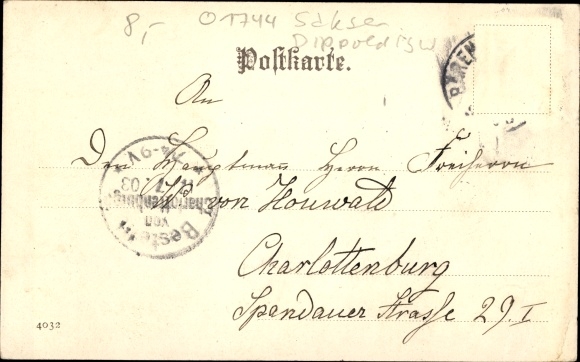 8,- 01744 Sachsen
Dippoldisw
Postkarte.
BÄREN
An
Den Hauptmann Herrn Freiherrn
von Houwald
Charlottenburg
Spandauer Strasse 29. I
Bestellt
von
Charlottenburg
03
4032